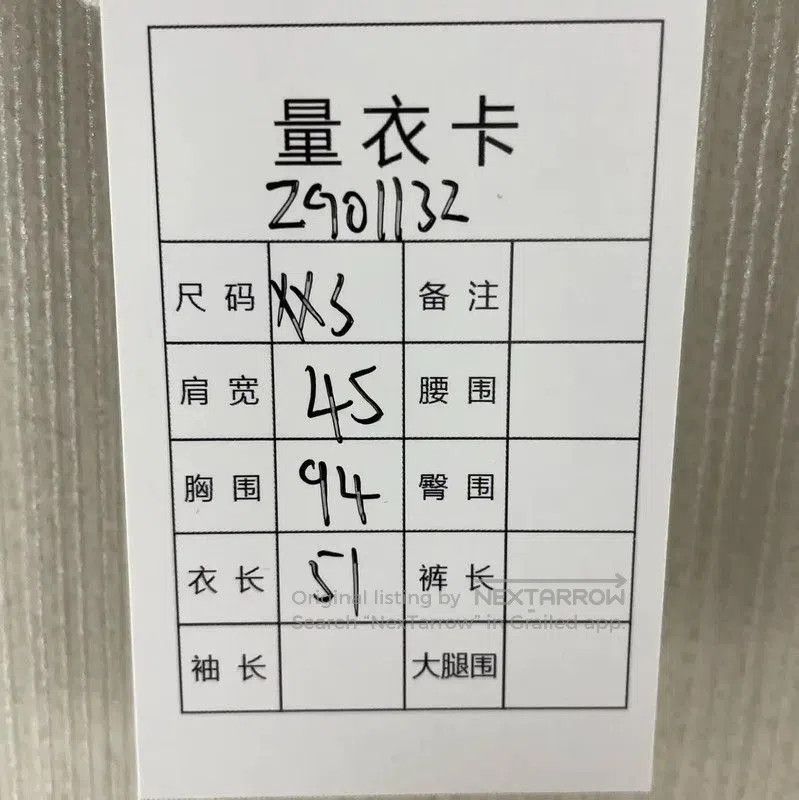 量衣卡
2901132
尺码 XXS 备注
肩宽 45 腰围
胸围 94 臀围
衣长 51 裤长
Original listing by NEXTARROW
Search "NexTarrow" in Grailed app.
袖长 大腿围